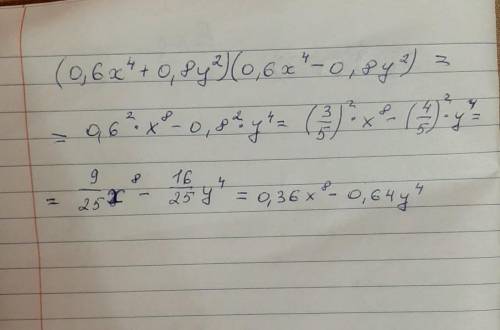 (0,6x⁴ + 0,8y²)(0,6x⁴ − 0,8y²) =
= 0,6² · x⁸ − 0,8² · y⁴ = (3/5)² · x⁸ − (4/5)² · y⁴ =
= 9/25 x⁸ − 16/25 y⁴ = 0,36x⁸ − 0,64y⁴